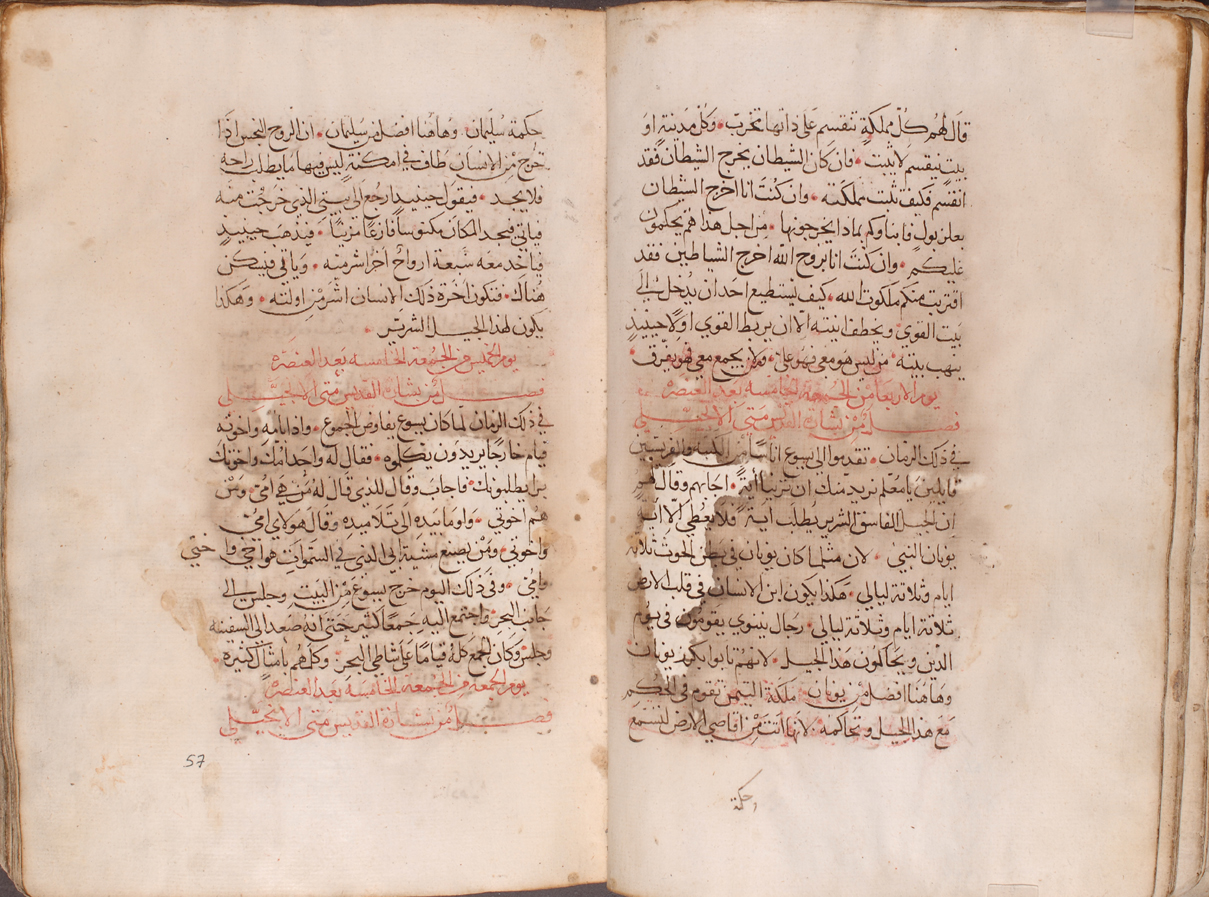 قال لهم كل مملكة تنقسم على ذاتها تخرب • وكل مدينة او
بيت ينقسم لا يثبت • فان كان الشيطان يخرج الشيطان فقد
انقسم فكيف تثبت مملكته • وان كنت انا اخرج الشيطان
بعلزبول فابناوكم بماذا يخرجونها • من اجل هذا هم يحكمون
عليكم • وان كنت انا بروح الله اخرج الشياطين فقد
اقتربت منكم ملكوت الله • كيف يستطيع احد ان يدخل الى
بيت القوي • ويخطف انيته الا ان يربط القوي اولا حينيذ
ينهب بيته • من ليس هو معي فهو علي • ومن لا يجمع معي فهو يفرق •
يوم الاربعا من الجمعة الخامسة بعد العنصرة
فصل من بشارة القديس متى الانجيلي
في ذلك الزمان • تقدموا الى يسوع اناسا من الكتبة والفريسين
قايلين يا معلم نريد منك ان ترينا اية • اجابهم وقال لهم
ان الجيل الفاسق الشرير يطلب اية • فلا يعطى الا اية
يونان النبي • لان مثلما كان يونان في بطن الحوت ثلاثة
ايام وثلاثة ليالي • هكذا يكون ابن الانسان في قلب الارض
ثلاثة ايام وثلاثة ليالي • رجال نينوي يقومون في يوم
الدين ويحاكمون هذا الجيل • لانهم تابوا بكرز يونان
وهاهنا افضل من يونان • ملكة التيمن تقوم في الحكم
مع هذا الجيل وتحاكمه • لانها اتت من اقاصي الارض لتسمع
حكمة
حكمة سليمان • وهاهنا افضل من سليمان • ان الروح النجس اذا
خرج من الانسان طاف في امكنة ليس فيها ما يطلب راحه
فلا يجد • فيقول حينيذ ارجع الى بيتي الذي خرجت منه
فياتي فيجد المكان مكنوسا فارغا مزينا • فيذهب حينيذ
فياخد معه سبعة ارواح اخر اشر منه • وياتي فيسكن
هناك • فتكون اخرة ذلك الانسان اشر من اولته • وهكذا
يكون لهذا الجيل الشرير •
يوم الخميس من الجمعة الخامسه بعد العنصره
فصل من بشارة القديس متى الانجيلي
في ذلك الزمان لما كان يسوع يفاوض الجموع • واذا امه واخوته
قيام خارجا يريدون يكلموه • فقال له واحد امك واخوتك
برا يطلبونك • فاجاب وقال للذي قال له من هي امي • ومن
هم اخوتي • واوما بيده الى تلاميده وقال هولاي امي
واخوتي • ومن يصنع مشية ابي الذي في السموات هو اخي واختي
وامي • وفي ذلك اليوم خرج يسوع من البيت وجلس الى
جانب البحر • فاجتمع اليه جمعا كثير حتى انه صعد الى السفينه
وجلس • وكان الجمع كله قياما على شاطي البحر • وكلمهم بامثال كثيره •
يوم الجمعه من الجمعه الخامسه بعد العنصره
فصل من بشارة القديس متى الانجيلي
57